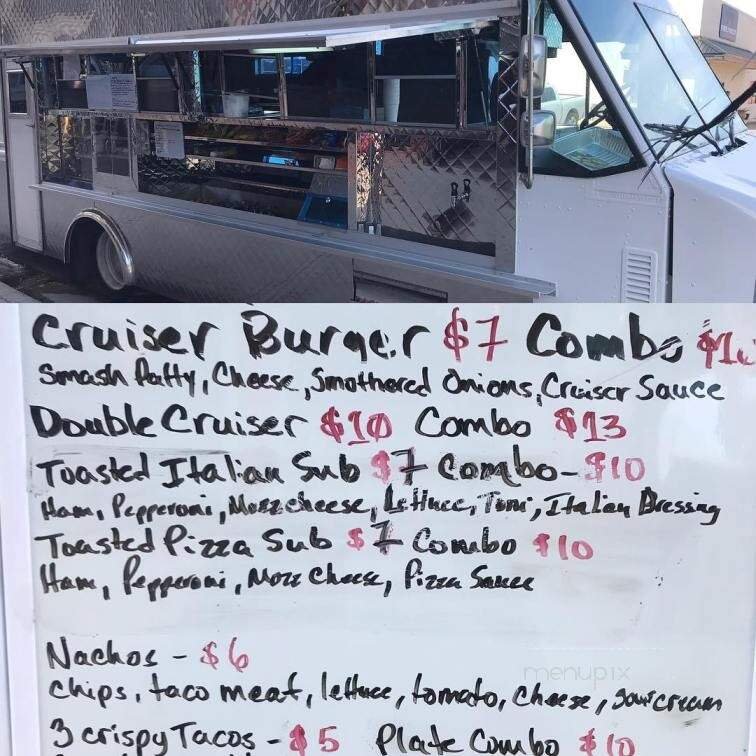 Cruiser Burger $7 Combo $10
Smash Patty, Cheese, Smothered Onions, Cruiser Sauce
Double Cruiser $10 Combo $13
Toasted Italian Sub $7 Combo - $10
Ham, Pepperoni, Mozz cheese, Lettuce, Tom, Italian Dressing
Toasted Pizza Sub $7 Combo $10
Ham, Pepperoni, Mozz Cheese, Pizza Sauce
Nachos - $6
menupix
chips, taco meat, lettuce, tomato, cheese, sour cream
3 crispy Tacos - $5 Plate Combo $10